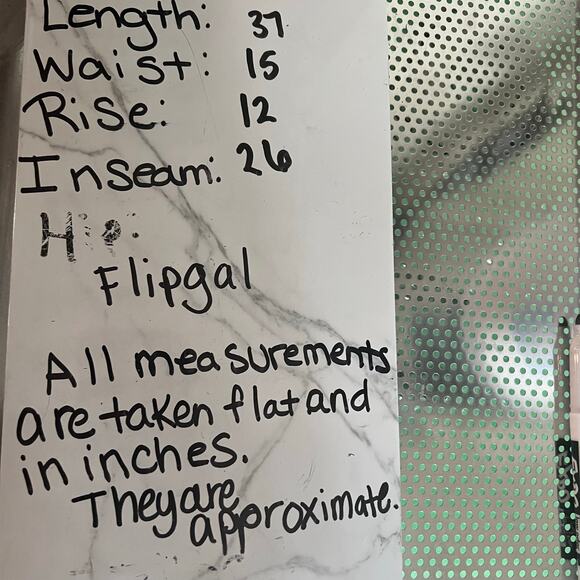 Length: 37
Waist: 15
Rise: 12
Inseam: 26
Hip:
Flipgal
All measurements
are taken flat and
in inches.
They are
approximate.